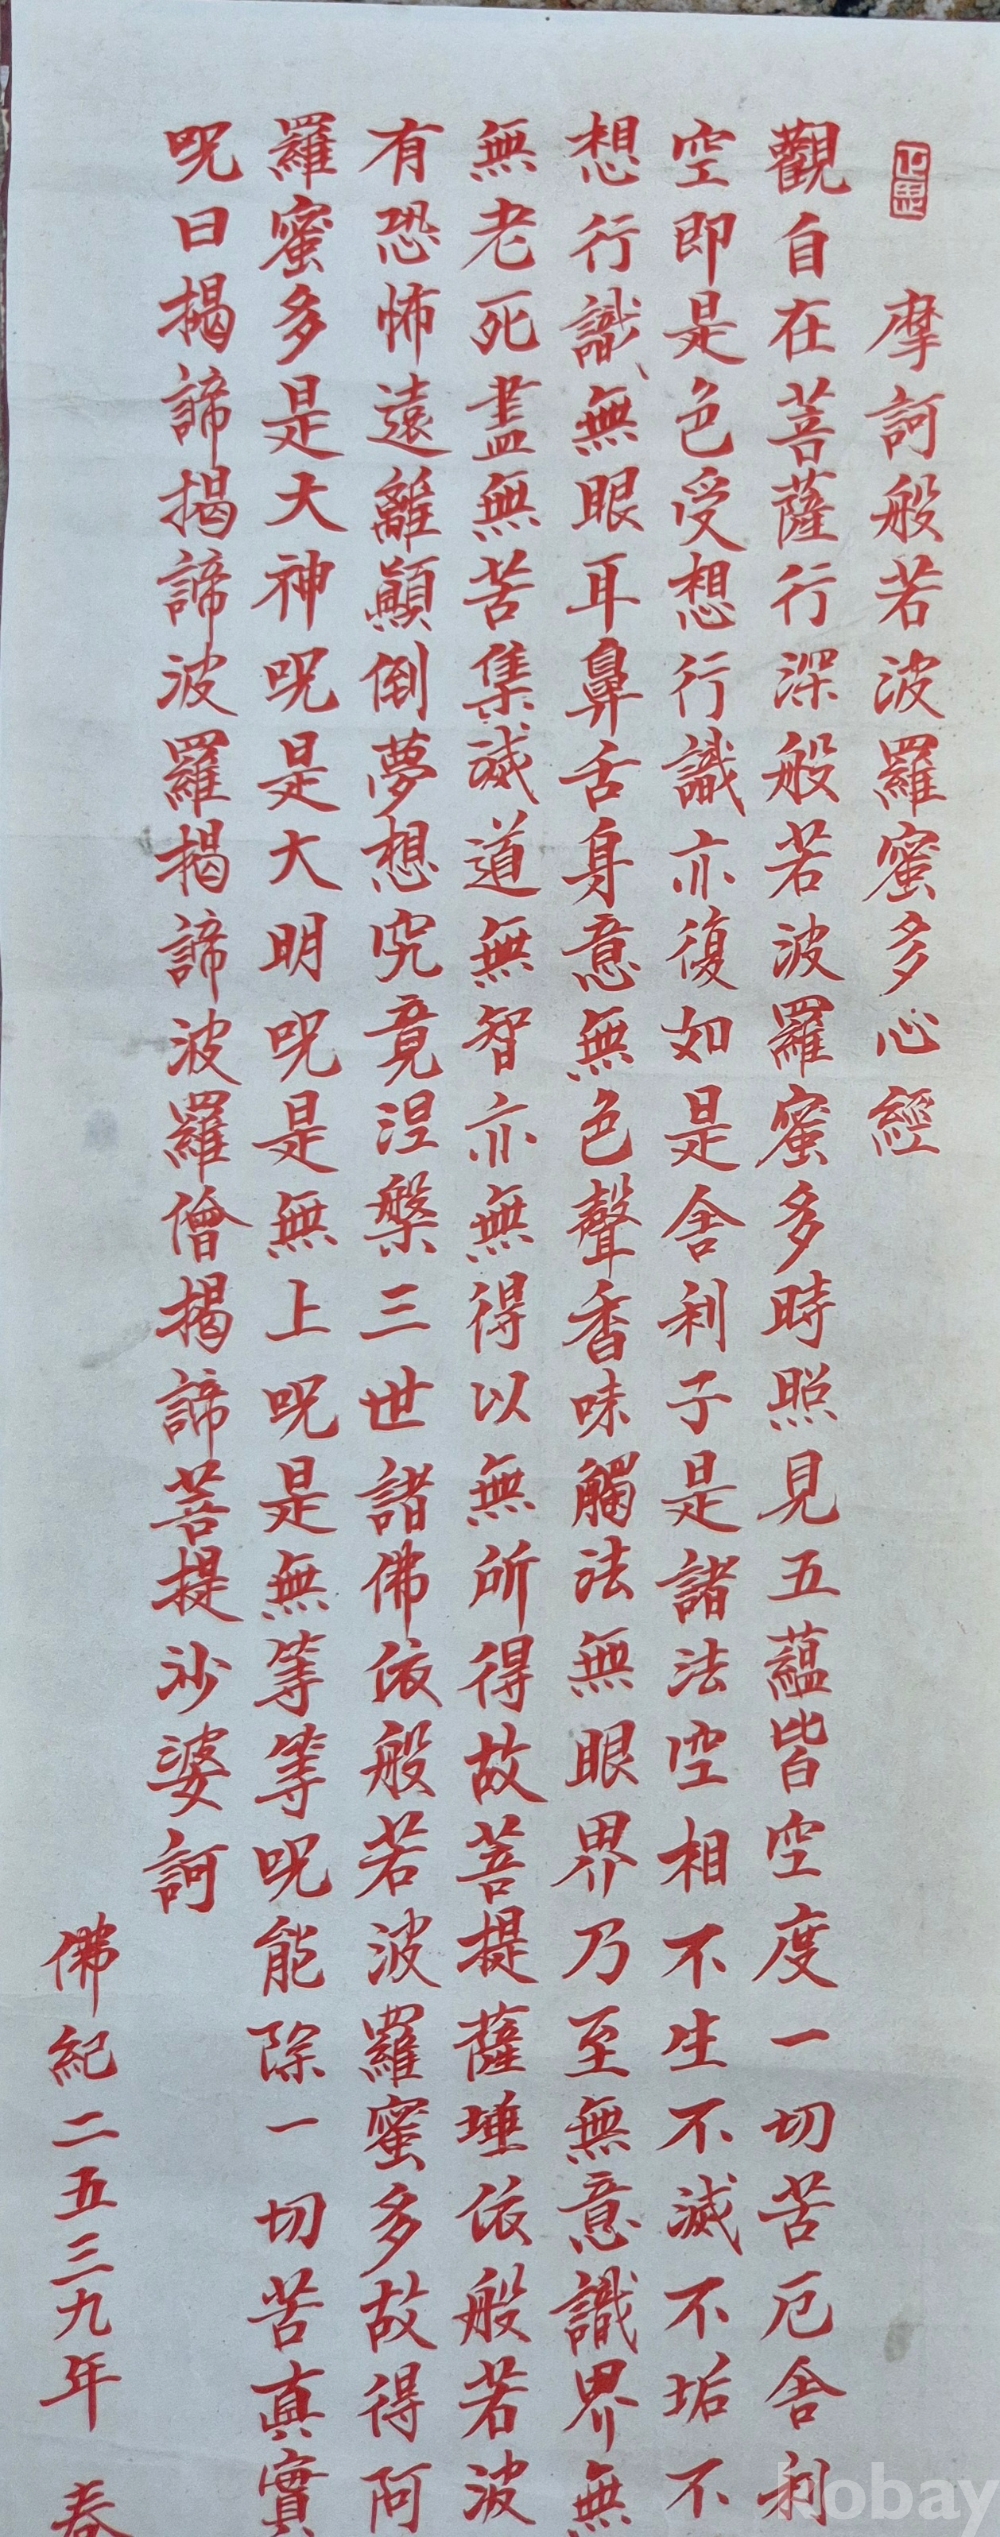 摩訶般若波羅蜜多心經
觀自在菩薩行深般若波羅蜜多時照見五蘊皆空度一切苦厄舍利
空即是色受想行識亦復如是舍利子是諸法空相不生不滅不垢不
想行識無眼耳鼻舌身意無色聲香味觸法無眼界乃至無意識界無
無老死盡無苦集滅道無智亦無得以無所得故菩提薩埵依般若波
有恐怖遠離顛倒夢想究竟涅槃三世諸佛依般若波羅蜜多故得阿
羅蜜多是大神呪是大明呪是無上呪是無等等呪能除一切苦真實
呪曰揭諦揭諦波羅揭諦波羅僧揭諦菩提沙婆訶
佛紀二五三九年 春
kobay